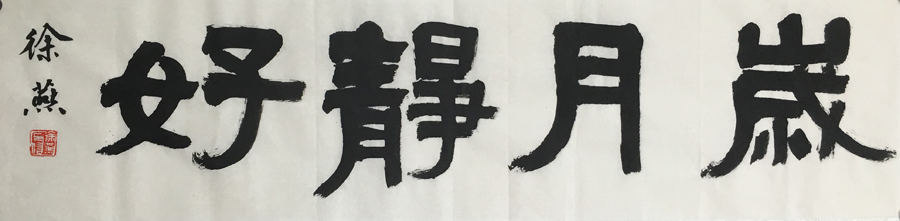 歲月靜好
徐燕